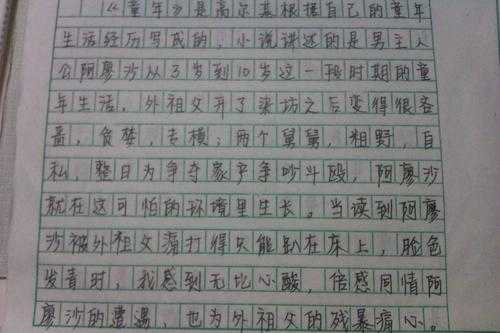 《童年》是高尔基根据自己的童年
生活经历写成的，小说讲述的是男主人
公阿廖沙从3岁到10岁这一段时期的童
年生活，外祖父开了染坊之后变得很吝
啬，贪婪，专横；两个舅舅，粗野，自
私，整日为争夺家产争吵斗殴，阿廖沙
就在这可怕的环境里生长。当读到阿廖
沙被外祖父痛打得只能趴在床上，脸色
发青时，我感到无比心酸，倍感同情阿
廖沙的遭遇，也为外祖父的残暴痛心。